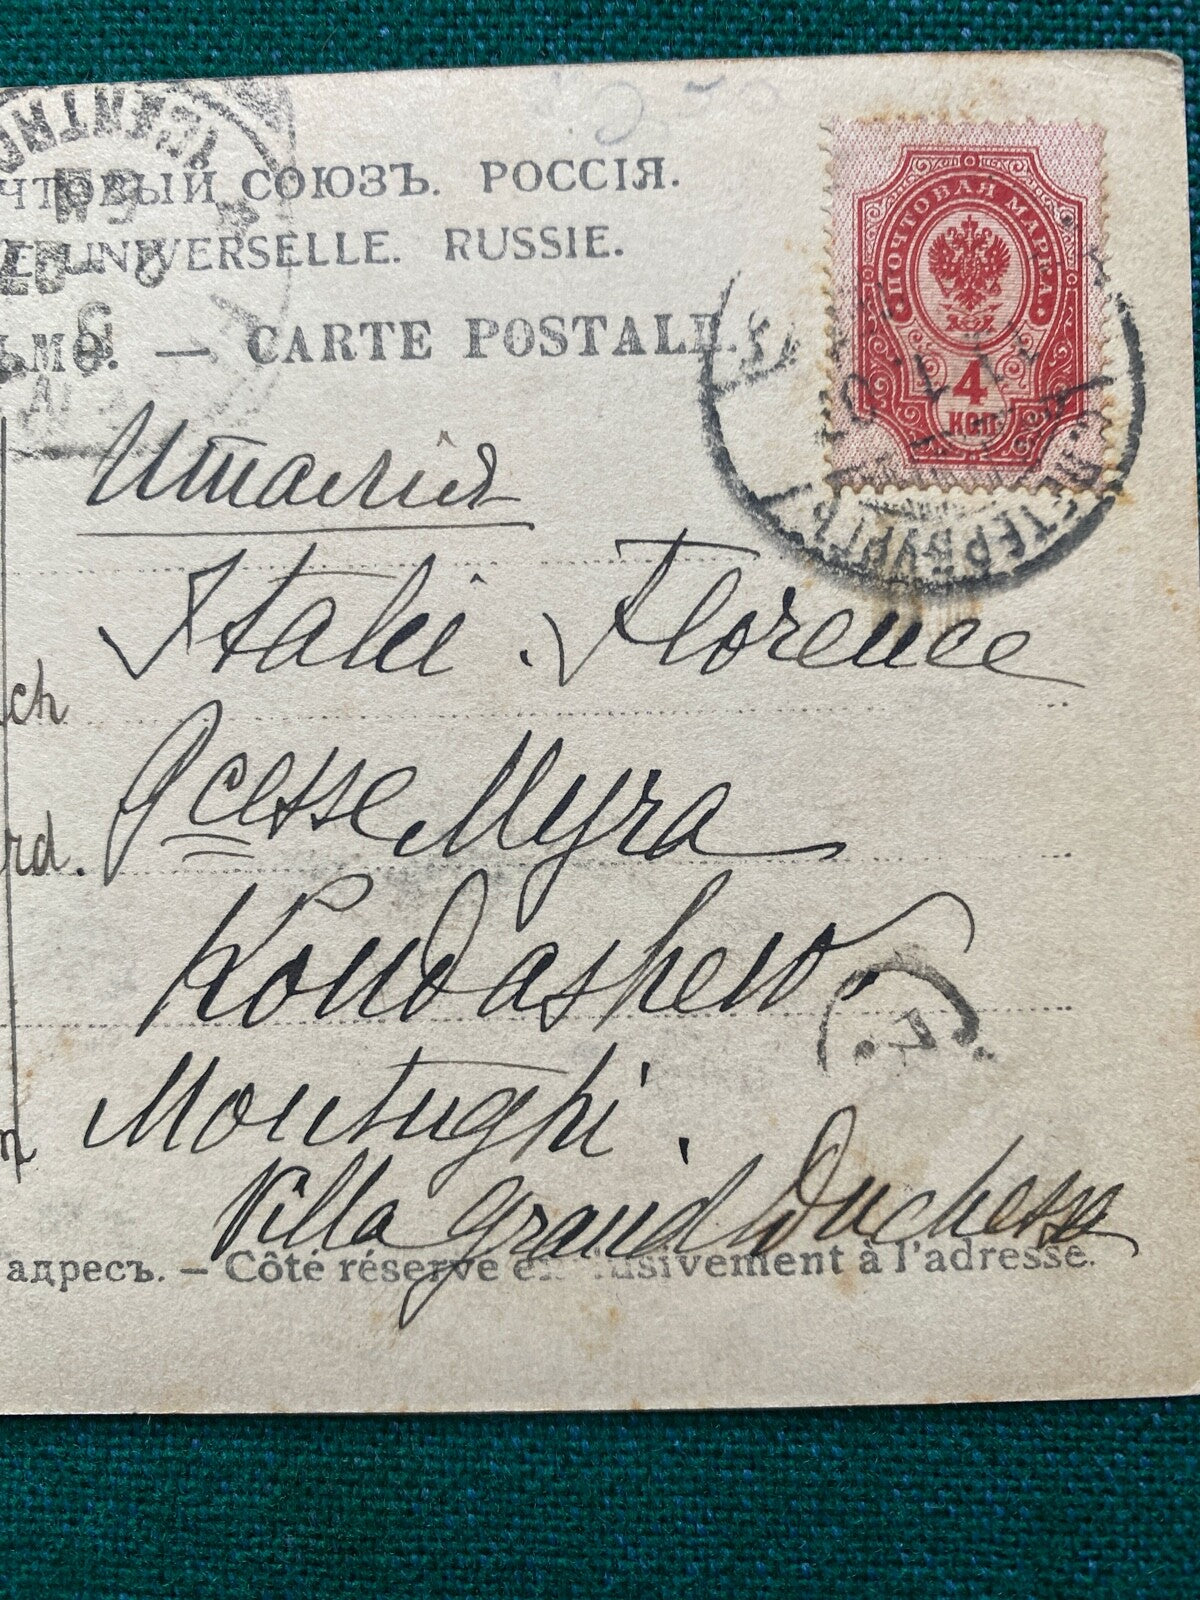 ЧТОВЫЙ СОЮЗЪ. РОССІЯ.
E UNIVERSELLE. RUSSIE.
ЬМО. — CARTE POSTALE.
ПОЧТОВАЯ МАРКА
4
КОП
С.ПЕТЕРБУРГЪ
Италія
Italie. Florence
ch
Pcesse Myra
rd.
Kondashew.
Montughi.
n
Villa grand Duchessa
адресъ. — Côté réservé exclusivement à l'adresse.